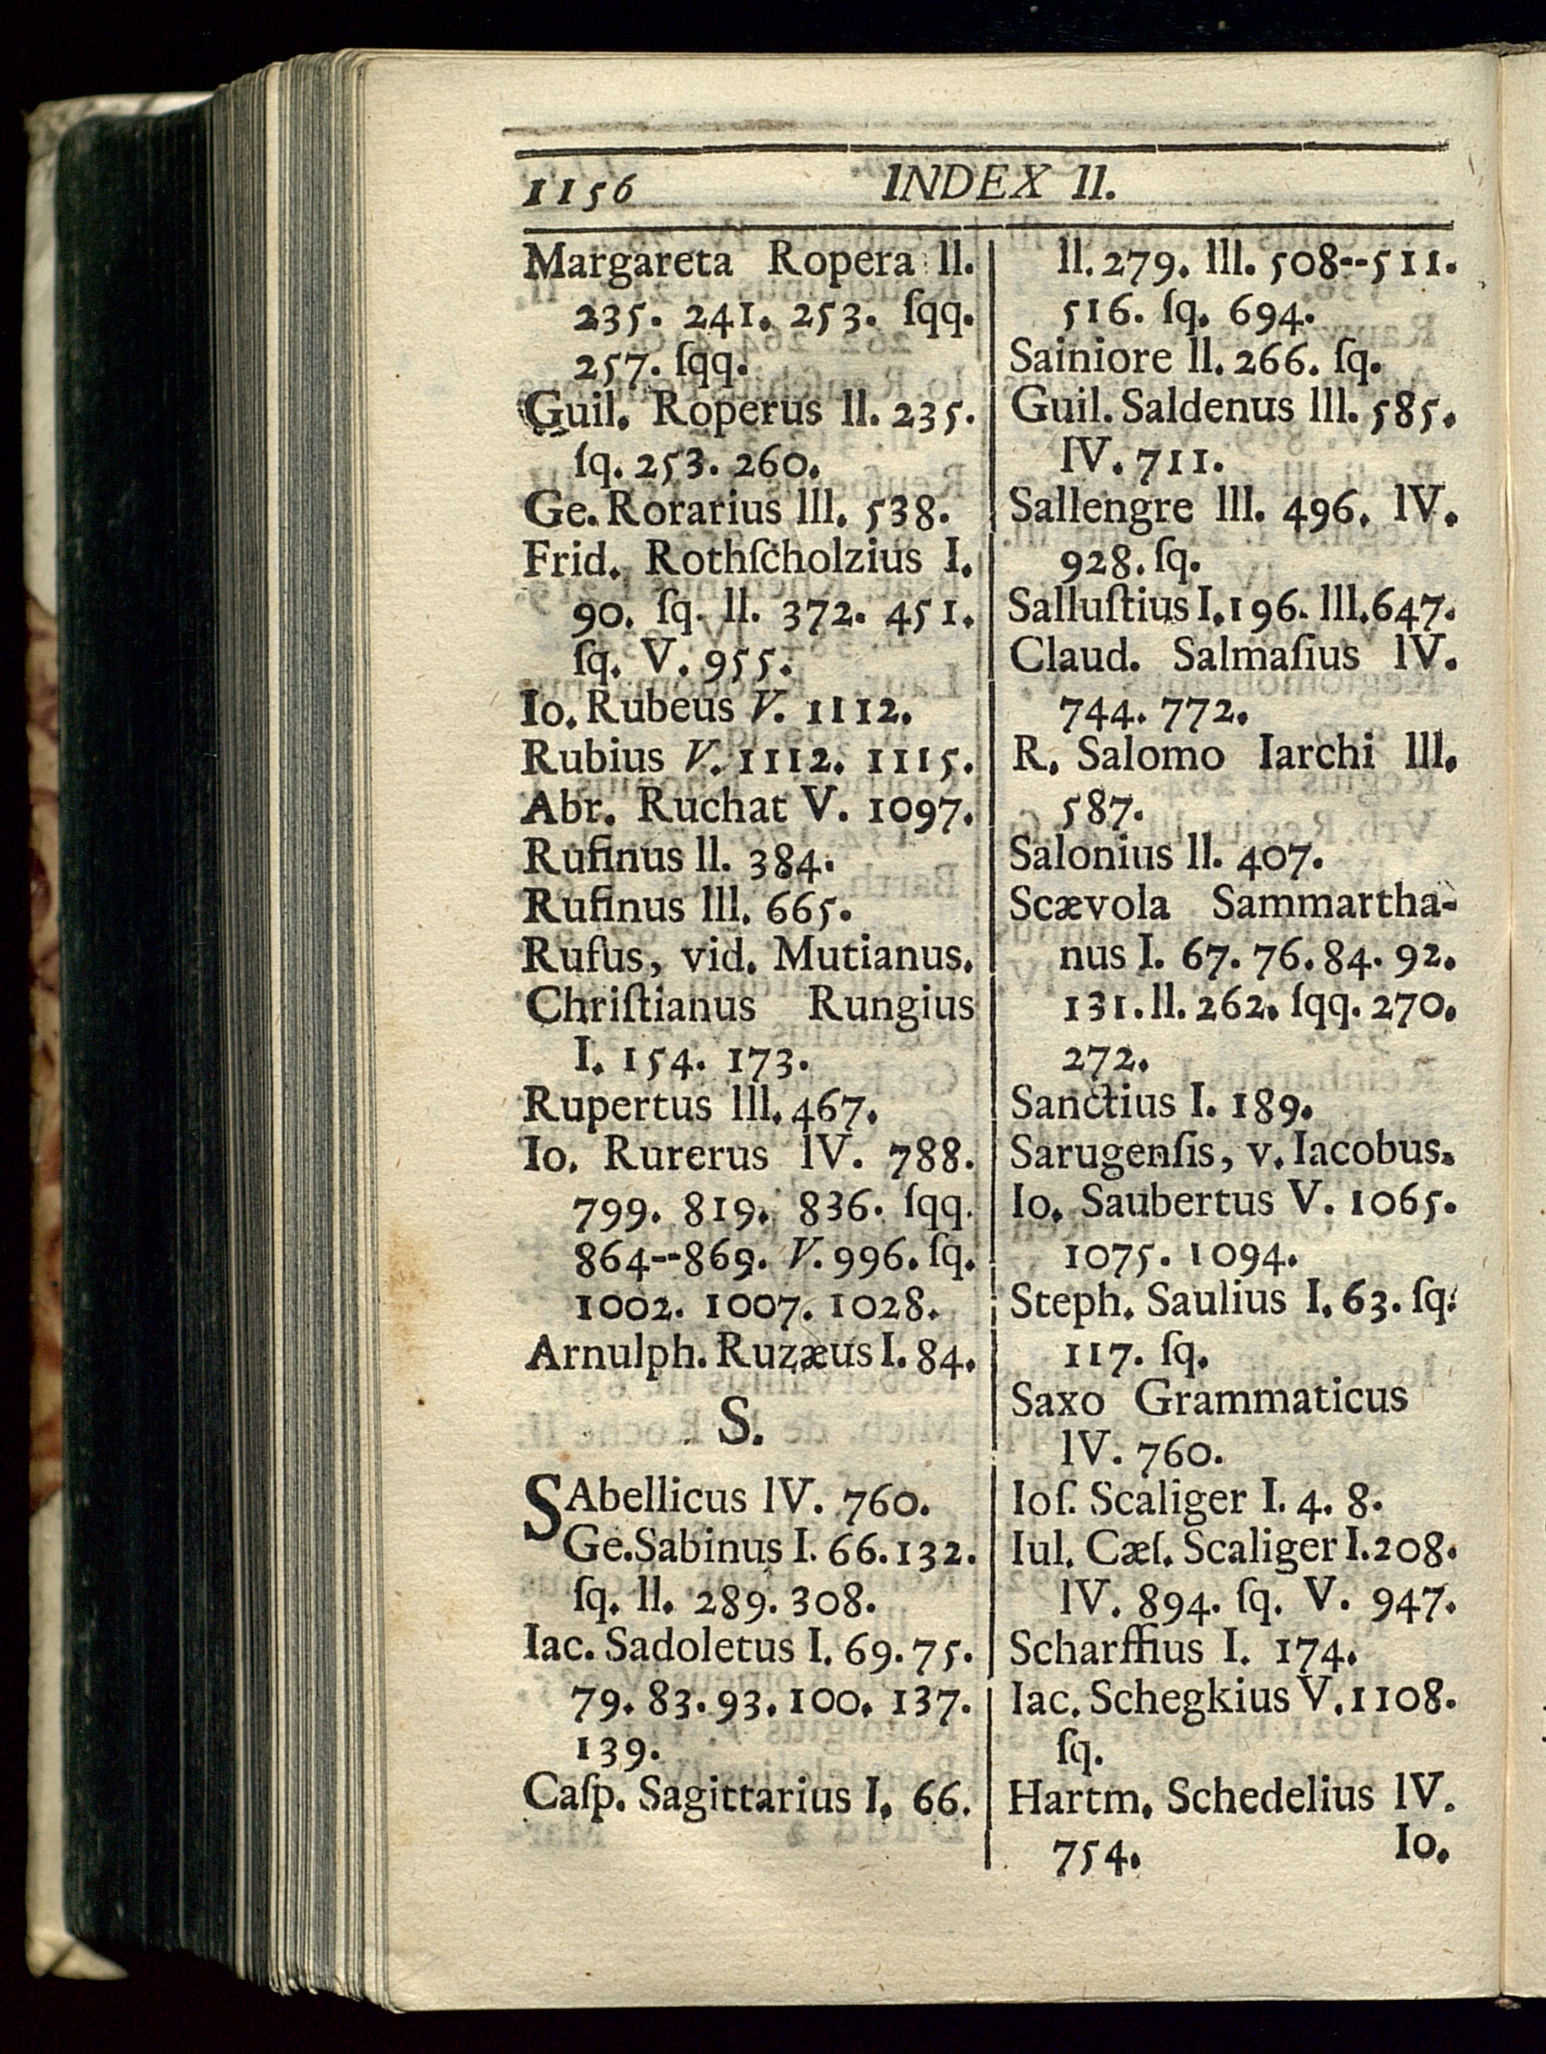 1156 INDEX II.
Margareta Ropera II.
235. 241. 253. ſqq.
257. ſqq.
Guil. Roperus II. 235.
ſq. 253. 260.
Ge. Rorarius III. 538.
Frid. Rothſcholzius I.
90. ſq. II. 372. 451.
ſq. V. 955.
Io. Rubeus V. 1112.
Rubius V. 1112. 1115.
Abr. Ruchat V. 1097.
Rufinus II. 384.
Rufinus III. 665.
Rufus, vid. Mutianus.
Chriſtianus Rungius
I. 154. 173.
Rupertus III. 467.
Io. Rurerus IV. 788.
799. 819. 836. ſqq.
864--869. V. 996. ſq.
1002. 1007. 1028.
Arnulph. Ruzæus I. 84.
S.
SAbellicus IV. 760.
Ge. Sabinus I. 66. 132.
ſq. II. 289. 308.
Iac. Sadoletus I. 69. 75.
79. 83. 93. 100. 137.
139.
Caſp. Sagittarius I. 66.
II. 279. III. 508--511.
516. ſq. 694.
Sainiore II. 266. ſq.
Guil. Saldenus III. 585.
IV. 711.
Sallengre III. 496. IV.
928. ſq.
Salluſtius I. 196. III. 647.
Claud. Salmaſius IV.
744. 772.
R. Salomo Iarchi III.
587.
Salonius II. 407.
Scævola Sammartha-
nus I. 67. 76. 84. 92.
131. II. 262. ſqq. 270.
272.
Sanctius I. 189.
Sarugenſis, v. Iacobus.
Io. Saubertus V. 1065.
1075. 1094.
Steph. Saulius I. 63. ſq.
117. ſq.
Saxo Grammaticus
IV. 760.
Ioſ. Scaliger I. 4. 8.
Iul. Cæſ. Scaliger I. 208.
IV. 894. ſq. V. 947.
Scharffius I. 174.
Iac. Schegkius V. 1108.
ſq.
Hartm. Schedelius IV.
754. Io.